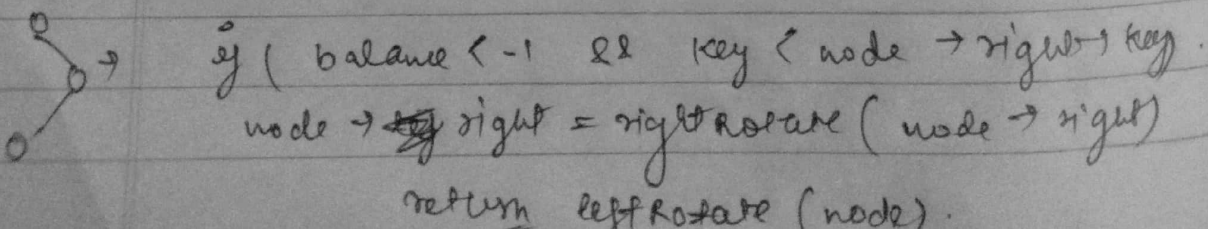 if ( balance < -1 && key < node → right → key.
node → right = rightRotate ( node → right)
return leftRotate (node).